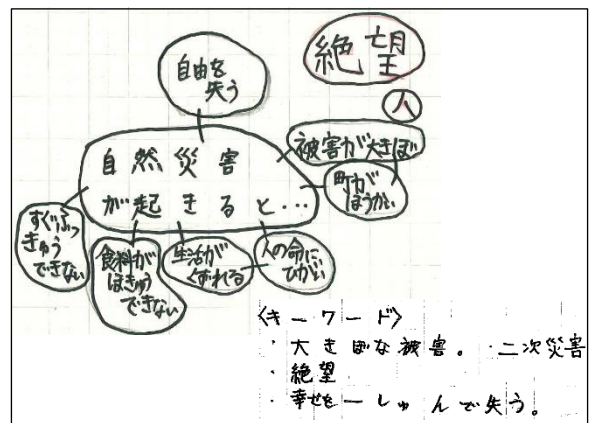 絶望
人
自由を
失う
自然災害
が起きると…
被害が大きぼ
町が
ほうかい
すぐふっ
きゅう
できない
食料が
ほきゅう
できない
生活が
くずれる
人の命に
ひがい
〈キーワード〉
・大きぼな被害。・二次災害
・絶望
・幸せを一しゅんで失う。